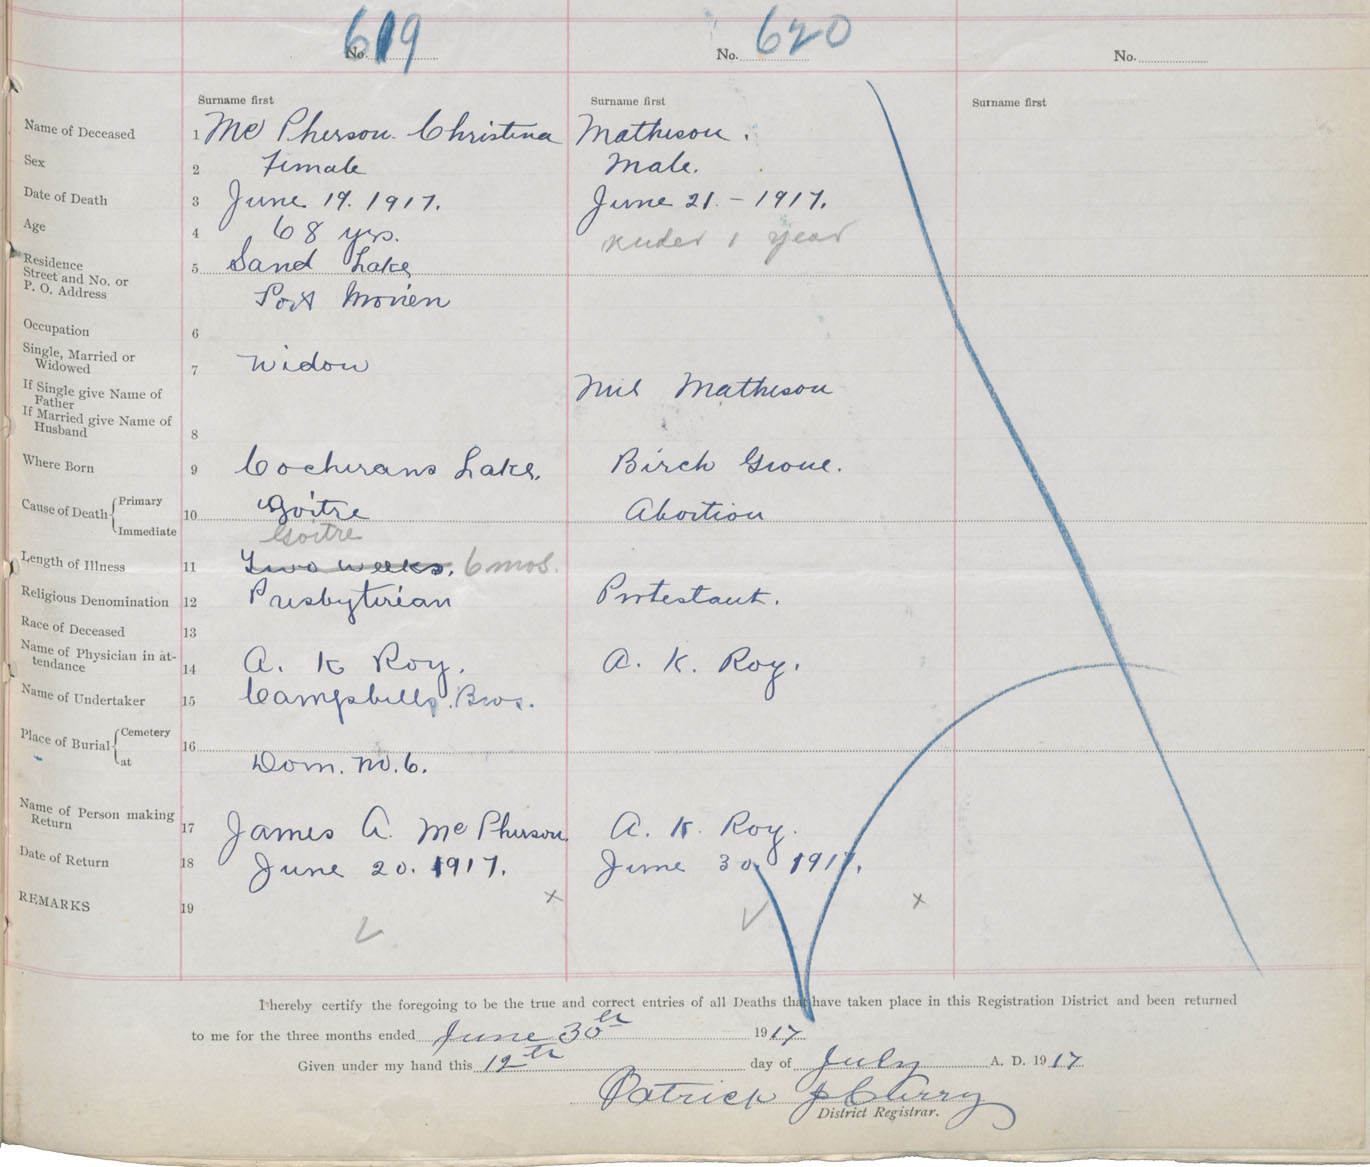 619 620
No. No. No.
Surname first Surname first Surname first
Name of Deceased 1 Mc Pherson. Christina Matheson.
Sex 2 Female Male.
Date of Death 3 June 19. 1917. June 21. - 1917.
Age 4 68 yrs. under 1 year
Residence 5 Sand Lake
Street and No. or
P. O. Address Port Morien
Occupation 6
Single, Married or
Widowed 7 Widow
If Single give Name of
Father Neil Matheson
If Married give Name of
Husband 8
Where Born 9 Cochrans Lake. Birch Grove.
Cause of Death { Primary
10 Goitre Abortion
Immediate Goitre
Length of Illness 11 Two weeks. 6 mos.
Religious Denomination 12 Presbyterian Protestant.
Race of Deceased 13
Name of Physician in at-
tendance 14 A. K Roy. A. K. Roy.
Name of Undertaker 15 Campbells. Bros.
Place of Burial { Cemetery
16
at Dom. No. 6.
Name of Person making
Return 17 James A. Mc Pherson. A. K. Roy.
Date of Return 18 June 20. 1917. June 30. 1917.
REMARKS 19
I hereby certify the foregoing to be the true and correct entries of all Deaths that have taken place in this Registration District and been returned
to me for the three months ended June 30th 1917
Given under my hand this 12th day of July A. D. 1917
Patrick
District Registrar.